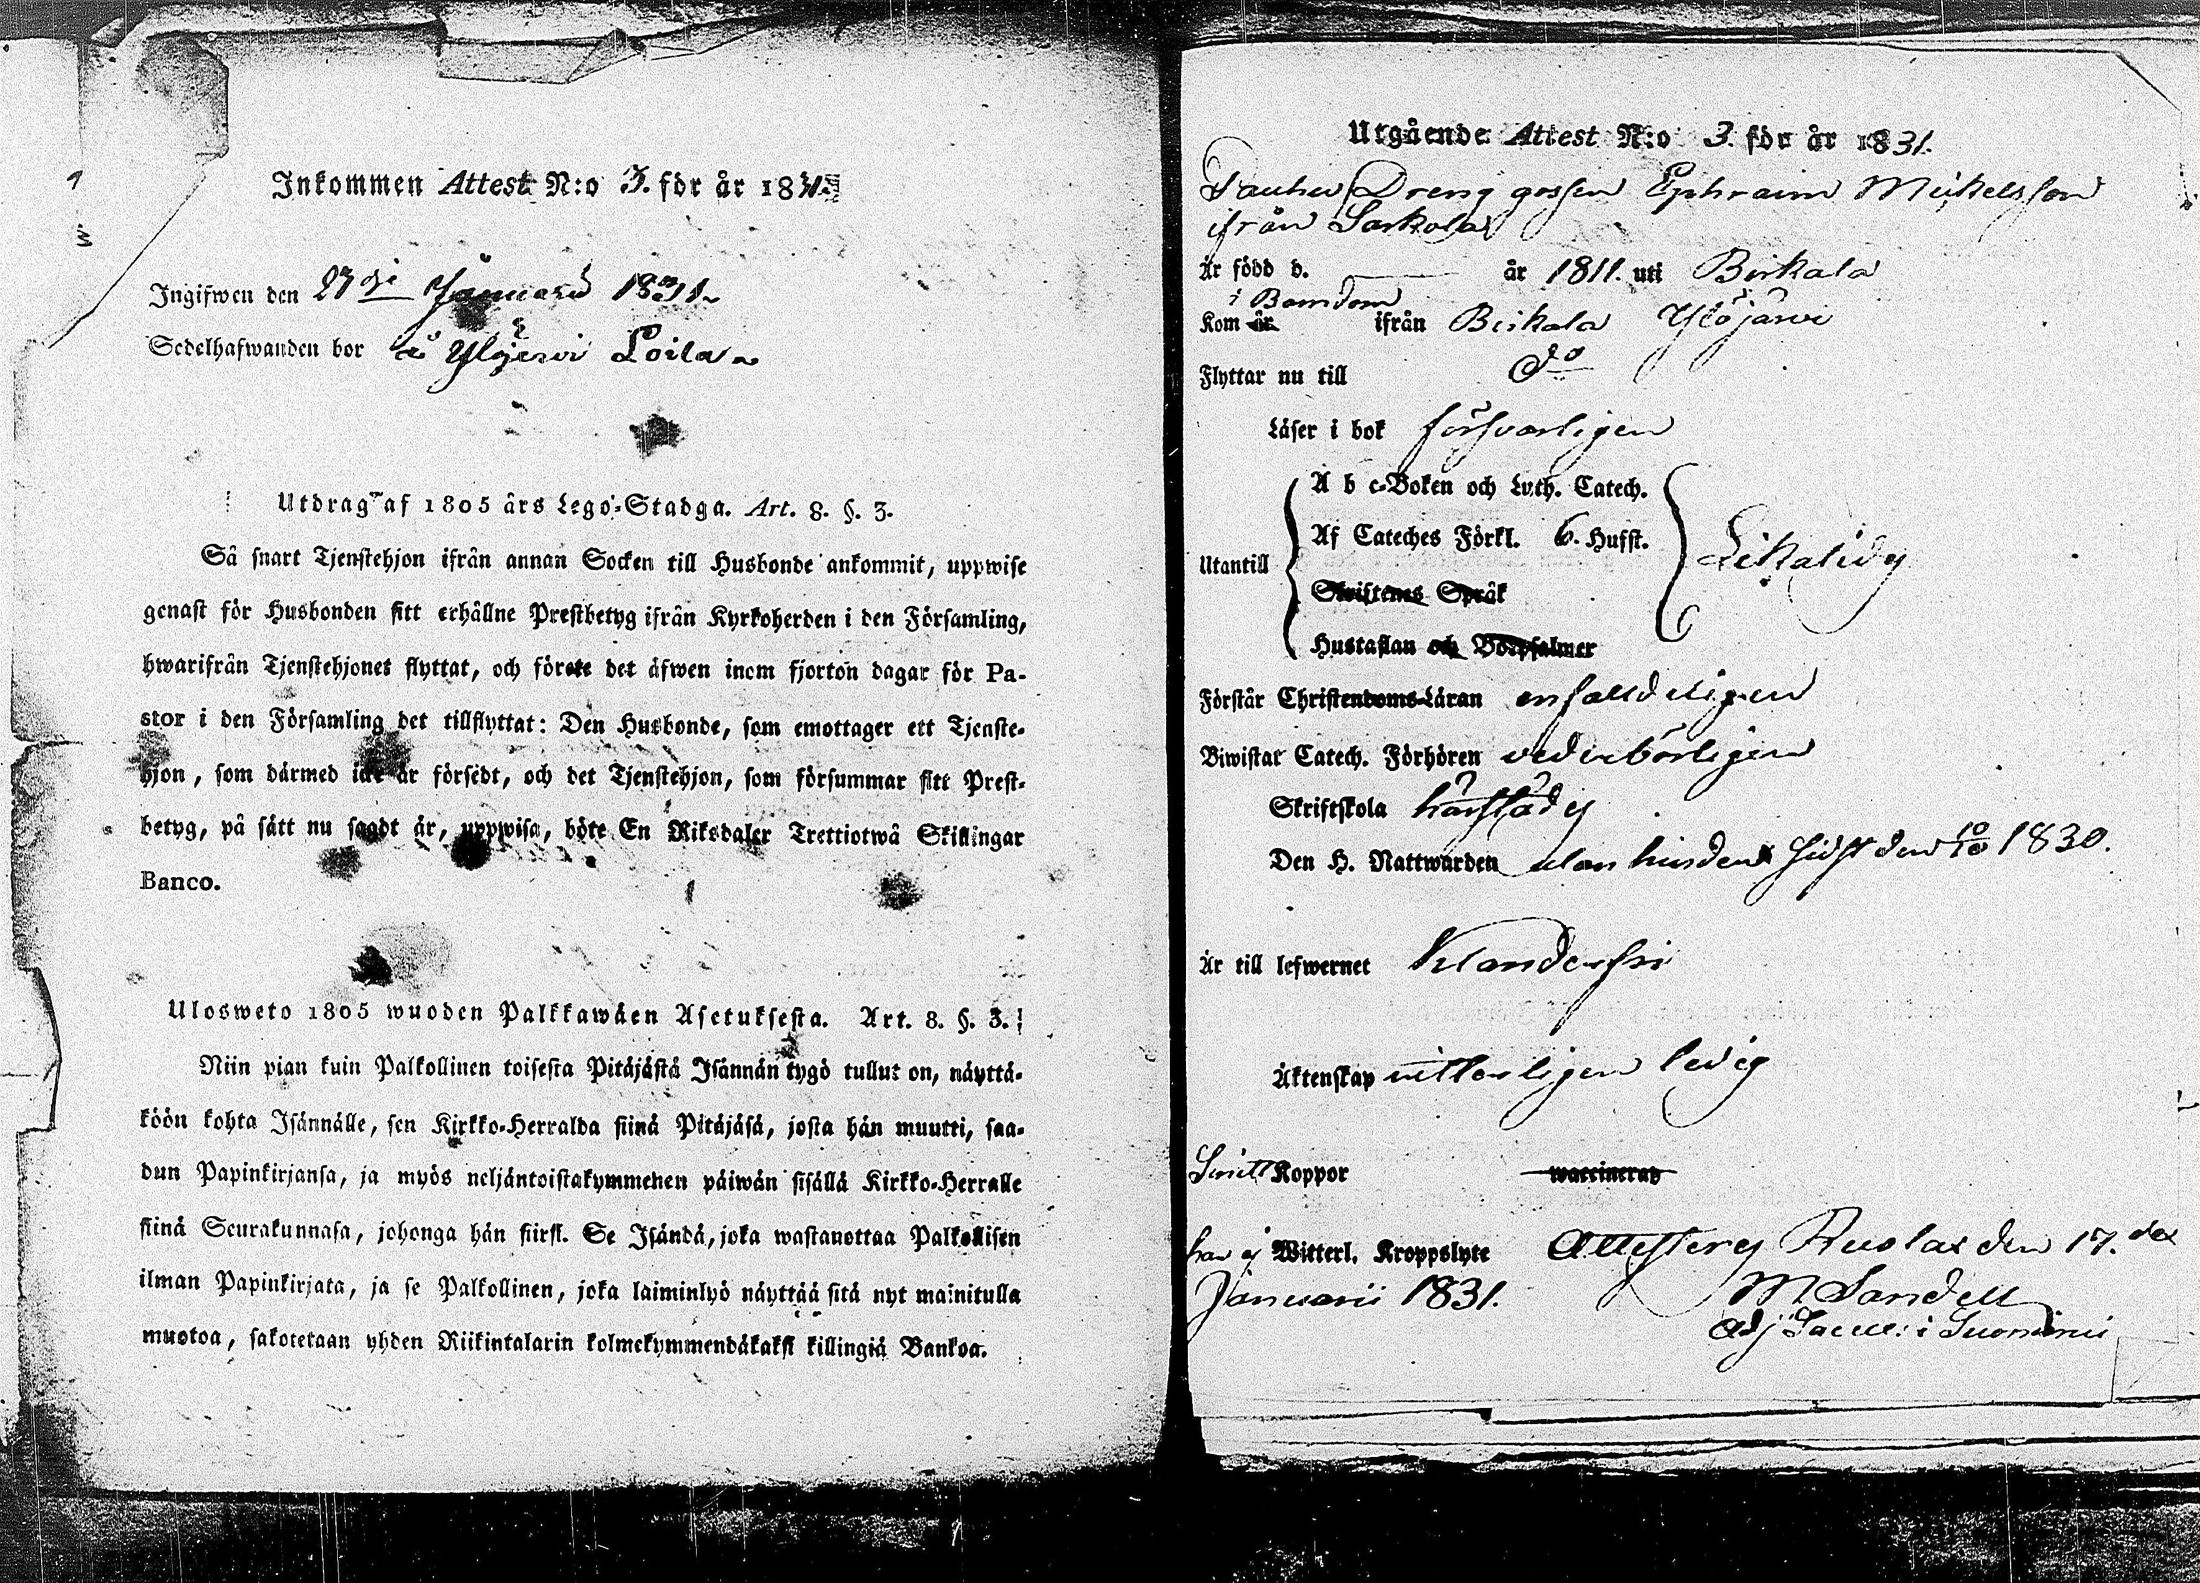 Inkommen Attest N:o 3. för år 1831.
Ingifwen den 27de Januarii 1831.
Sedelhafwanden bor i Ylöjervi Loila
Utdrag af 1805 års Lego-Stadga. Art. 8. §. 3.
Så snart Tjenstehjon ifrån annan Socken till Husbonde ankommit, uppwise
genast för Husbonden sitt erhållne Prestbetyg ifrån Kyrkoherden i den Församling,
hwarifrån Tjenstehjonet flyttat, och förete det äfwen inom fjorton dagar för Pa-
stor i den Församling det tillflyttat: Den Husbonde, som emottager ett Tjenste-
hjon, som därmed icke är försedt, och det Tjenstehjon, som försummar sitt Prest-
betyg, på sätt nu sagdt är, uppwisa, böte En Riksdaler Trettiotwå Skillingar
Banco.
Ulosweto 1805 wuoden Palkkawäen Asetuksesta. Art. 8. §. 3.
Niin pian kuin Palkollinen toisesta Pitäjästä Isännän tygö tullut on, näyttä-
köön kohta Isännälle, sen Kirkko-Herralda siinä Pitäjäsä, josta hän muutti, saa-
dun Papinkirjansa, ja myös neljäntoistakymmenen päiwän sisällä Kirkko-Herralle
siinä Seurakunnasa, johonga hän siirsi. Se Isändä, joka wastanottaa Palkollisen
ilman Papinkirjata, ja se Palkollinen, joka laiminlyö näyttää sitä nyt mainitulla
muotoa, sakotetaan yhden Riikintalarin kolmekymmendäkaksi killingiä Bankoa.
Utgående Attest N:o 3. för år 1831.
Dreng gossen Ephraim Mickelsson
ifrån Sarkola
Är född d. år 1811. uti Birkala
i Barndom
Kom år ifrån Birkala Ylöjärvi
Flyttar nu till do
Läser i bok försvarligen
A b c-Boken och Luth. Catech.
Af Cateches Förkl. 6. Hufst.
Utantill
Skriftenes Språk
Likaledes
Hustaflan och Botpsalmer
Förstår Christendoms-Läran enfalldeligen
Biwistar Catech. Förhören vederbörligen
Skriftskola härstädes
Den H. Nattwarden utan hinder sidst den 10/10 1830.
Är till lefwernet klanderfri
Äktenskap vitterligen ledig
Smitt Koppor waccinerad
har ej Witterl. Kroppslyte Attesteras Ruolax den 17.de
Januarii 1831. M Sandell
Adj Sacell: i Suoniemi